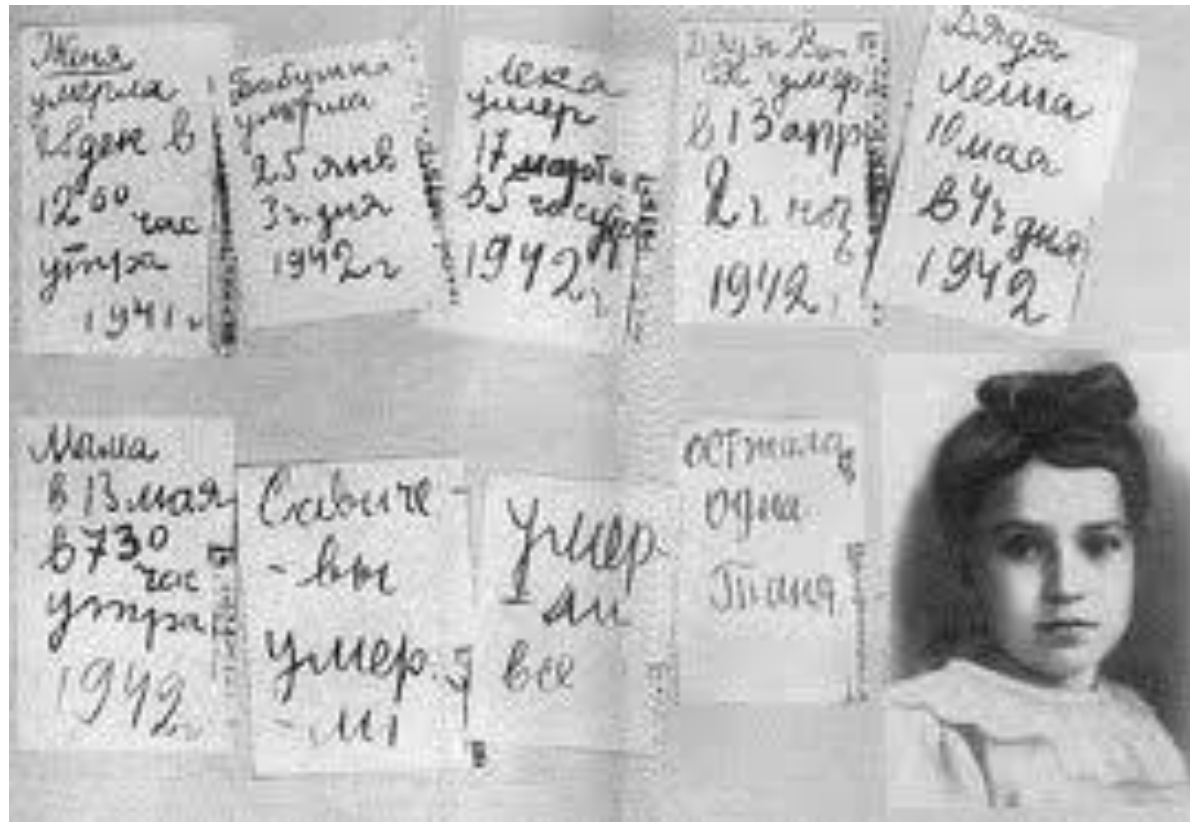 Женя
умерла
28 ден в
12 00 час
утра
1941 г
Бабушка
умерла
25 янв
3 ч. дня
1942 г
Лека
умер
17 марта
в 5 час утр
1942 г
Дядя Вас
ся умер
в 13 апр
2 ч ноч
ь
1942 г
Дядя
Леша
10 мая
в 4 ч дня
1942
Мама
в 13 мая
в 730
час
утра
1942 г
Савиче-
-вы
умер.
-ли
Умер.
-ли
все
осталась
одна
Таня